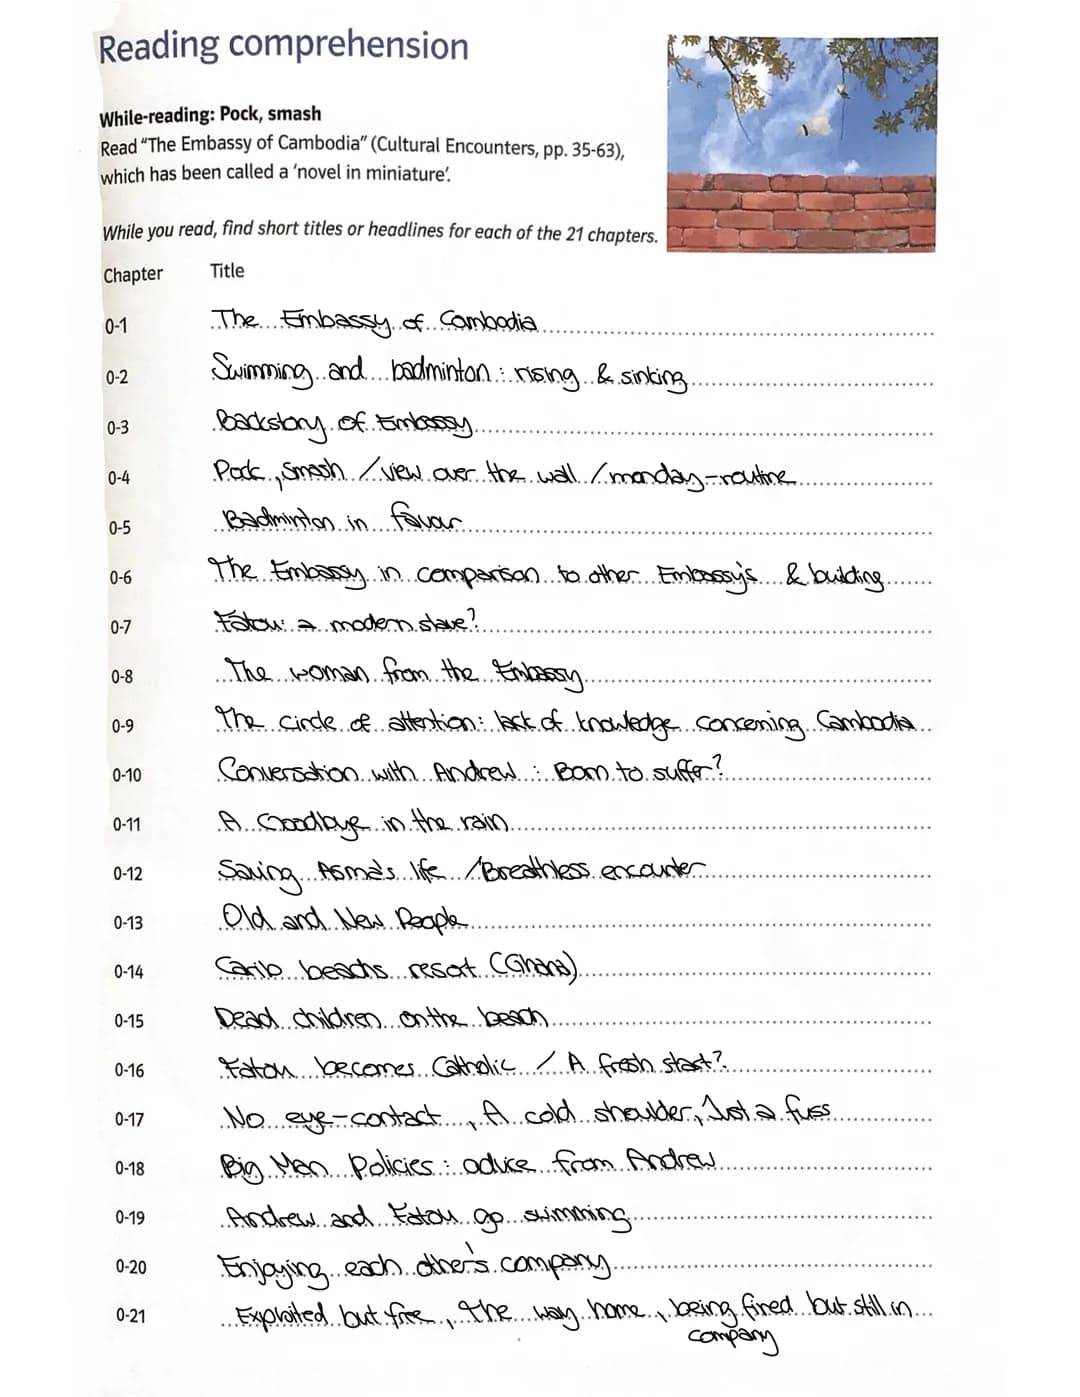 Reading comprehension
While-reading: Pock, smash
Read "The Embassy of Cambodia" (Cultural Encounters, pp. 35-63),
which has been called a 'novel in miniature'.
While you read, find short titles or headlines for each of the 21 chapters.
Chapter Title
0-1 The Embassy of Cambodia
0-2 Swimming and badminton: rising & sinking
0-3 Backstory of Embassy
0-4 Pock, Smash / view over the wall / monday-routine
0-5 Badminton in favour
0-6 The Embassy in comparison to other Embassy's & building
0-7 Fatou: a modern slave?
0-8 The woman from the Embassy
0-9 The circle of attention: lack of knowledge concerning Cambodia
0-10 Conversation with Andrew: Born to suffer?
0-11 A Goodbye in the rain
0-12 Saving Asma's life / Breathless encounter
0-13 Old and New People
0-14 Carib beachs resort (Ghana)
0-15 Dead children on the beach
0-16 Fatou becomes Catholic / A fresh start?
0-17 No eye-contact, A cold shoulder, Just a fuss
0-18 Big Man Policies: advice from Andrew
0-19 Andrew and Fatou go swimming
0-20 Enjoying each other's company
0-21 Exploited but free, the way home, being fired but still in
company